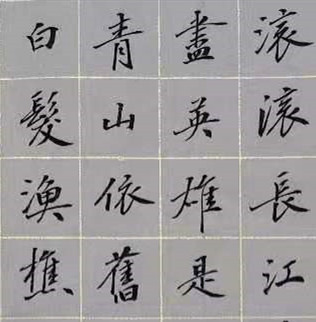 滚滚長江
盡英雄是
青山依舊
白髮漁樵